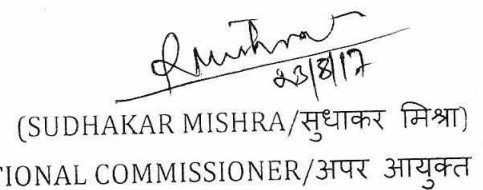 23/8/17
(SUDHAKAR MISHRA/सुधाकर मिश्रा)
TIONAL COMMISSIONER/अपर आयुक्त